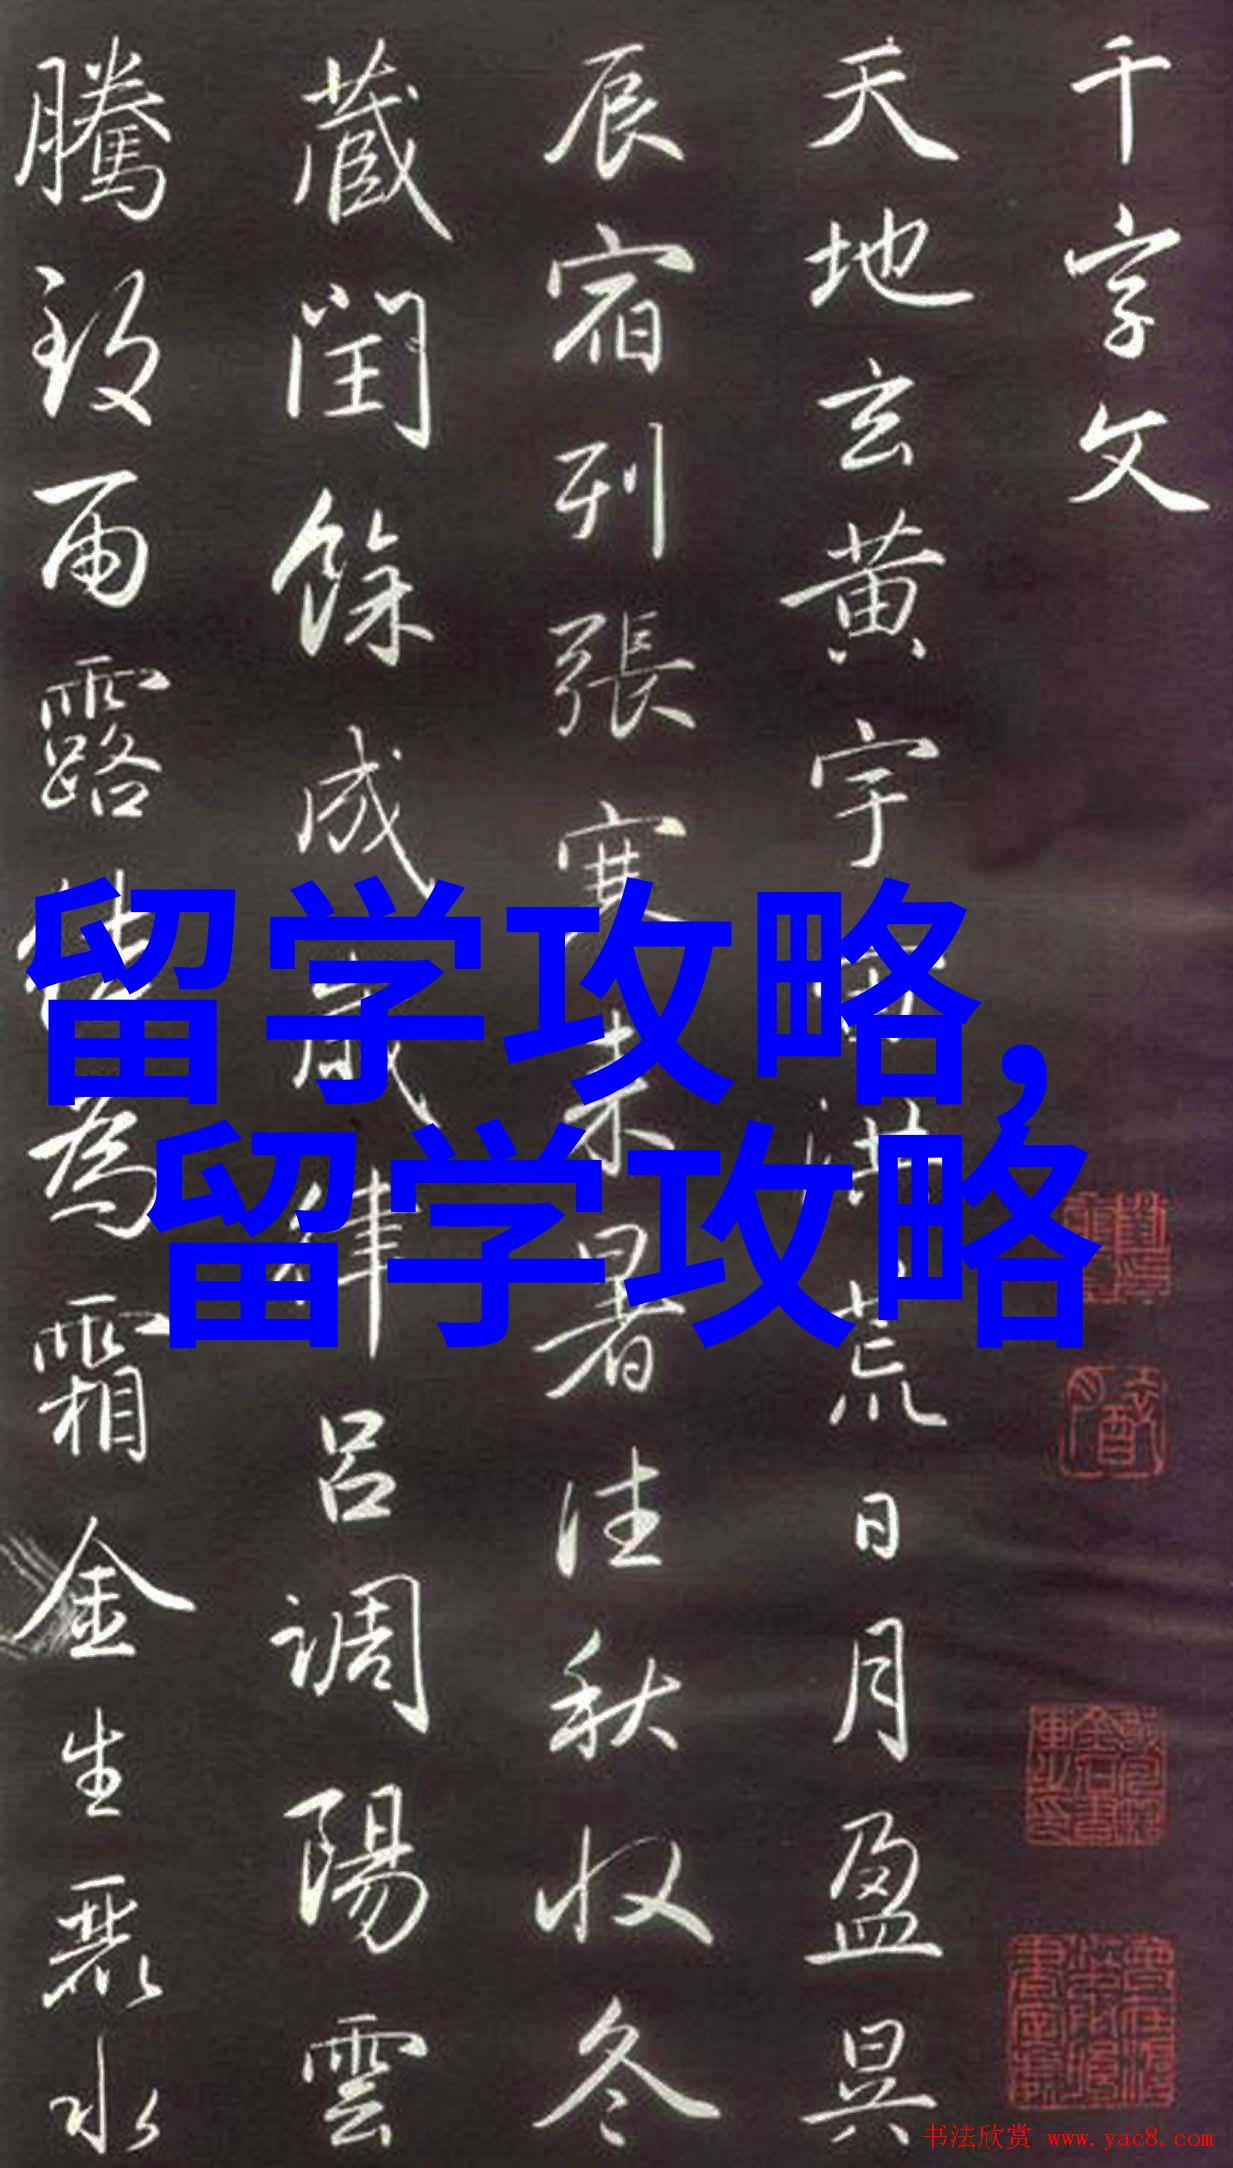 千字文
天地玄黄宇洪荒日月盈昃
辰宿列張寒来暑往秋收冬
藏閏餘成歲律呂調陽雲
騰致雨露為霜金生麗水
留学攻略,
留学攻略
书法欣赏 www.yac8.com